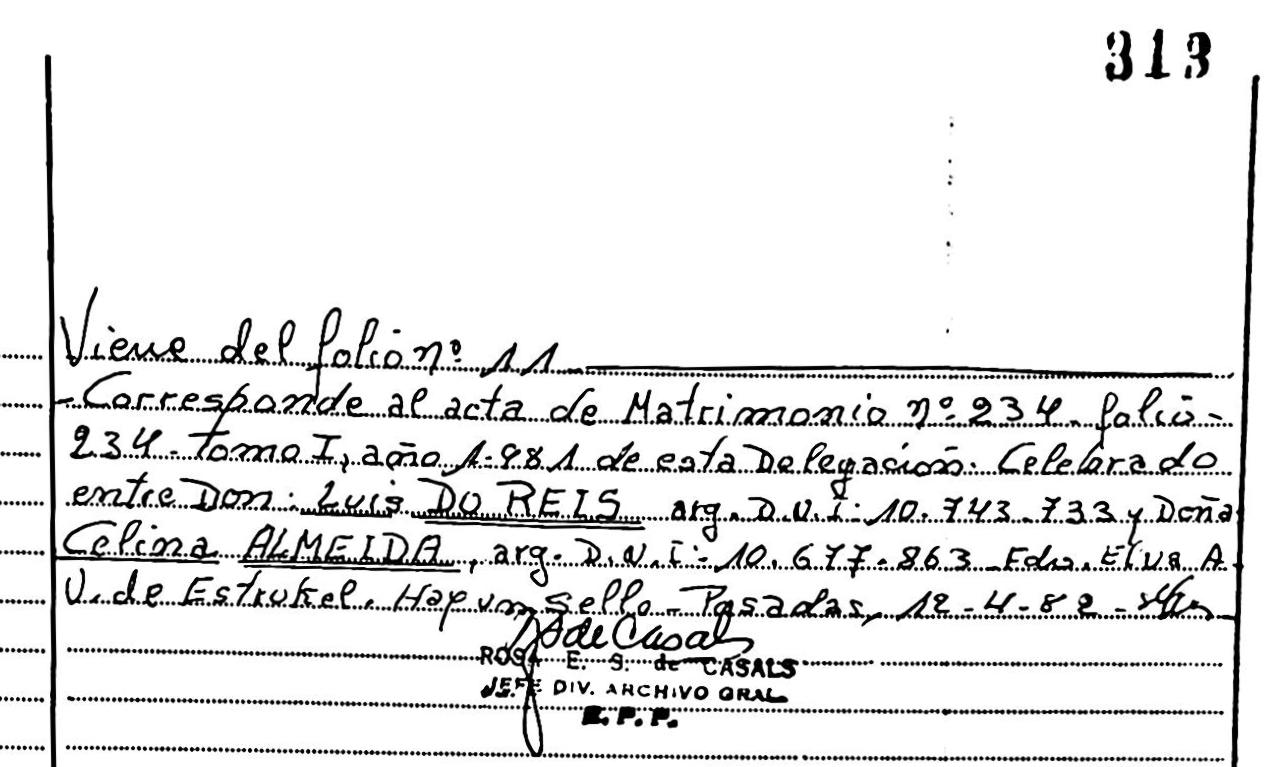 313
Viene del folio nº 11
- Corresponde al acta de Matrimonio nº 234. folio -
234. tomo I, año 1.981 de esta Delegación. Celebrado
entre Don: Luis DO REIS arg. D.N.I: 10.743.733 y Doña
Celina ALMEIDA, arg. D.N.I: 10.677.863 Fdo. Elva A
V. de Estrukel. Hay un Sello - Posadas, 12-4-82 -
de Casals
ROSA E. S. de CASALS
JEFE DIV. ARCHIVO GRAL
R. P. P.